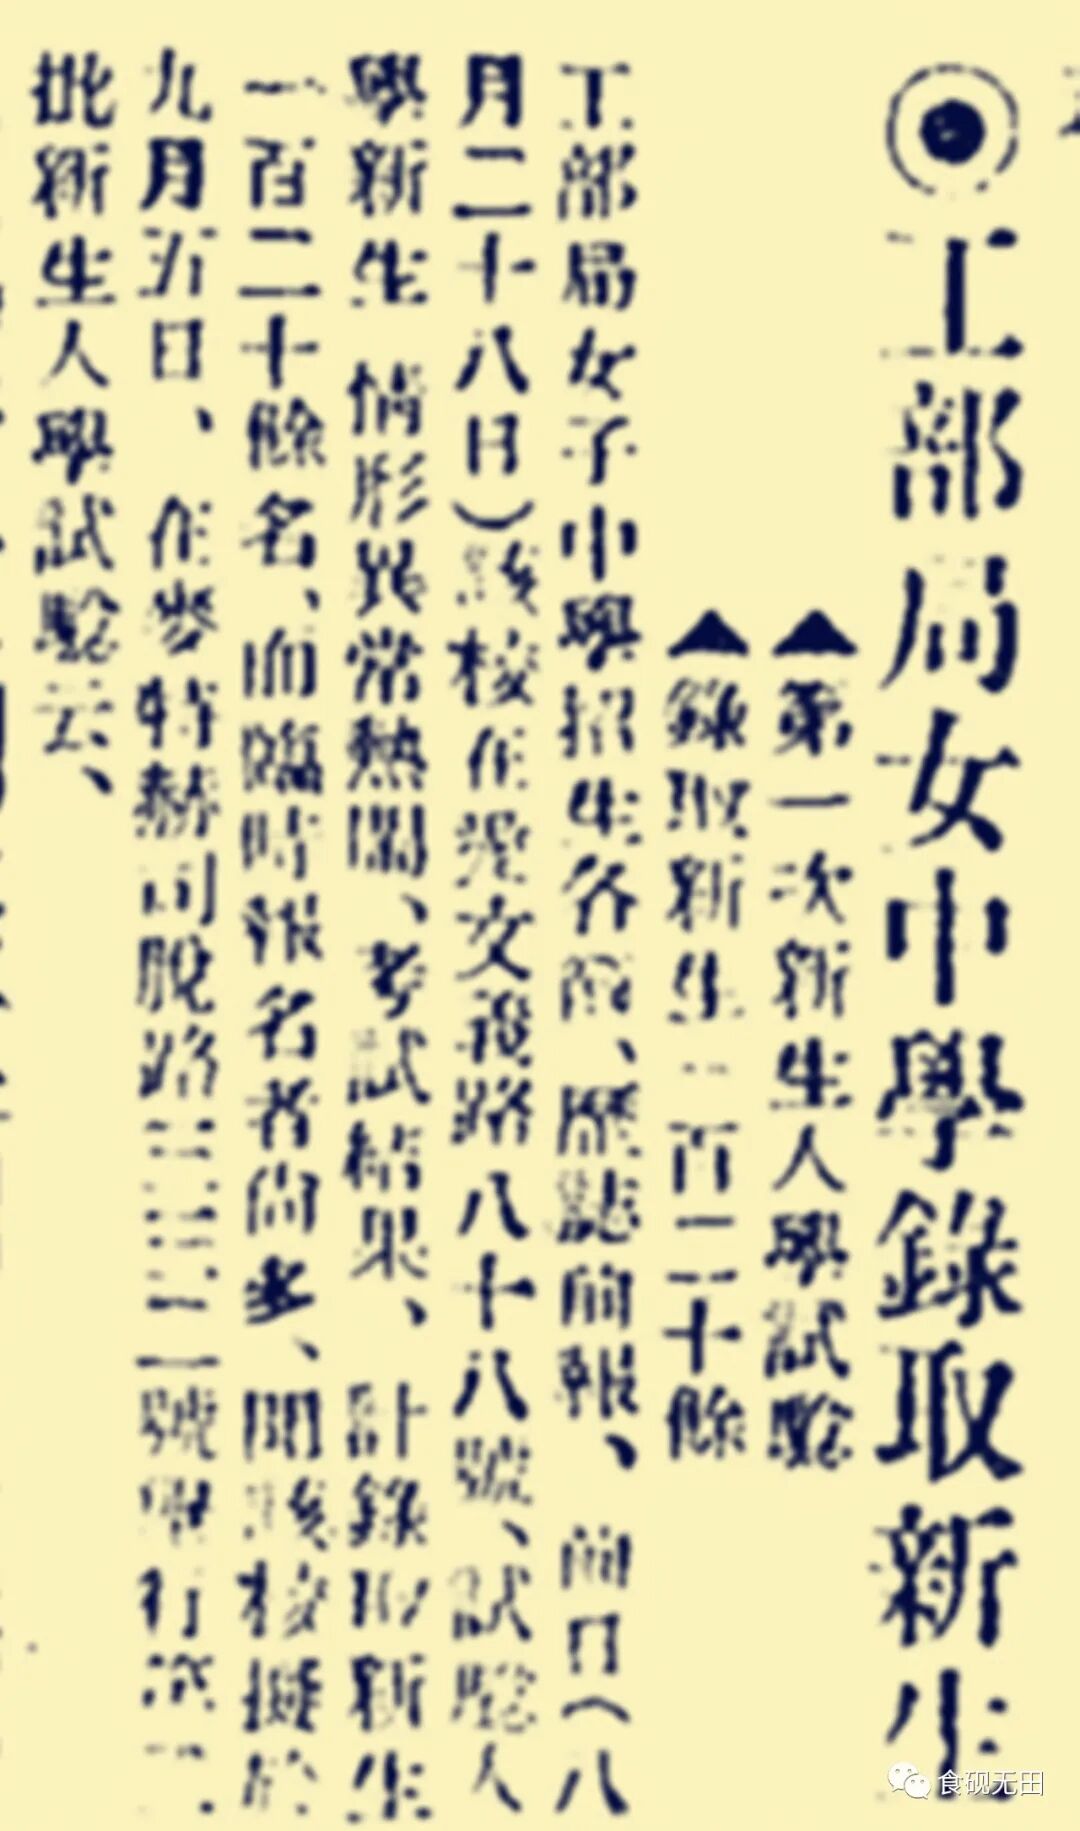 ◉工部局女中學錄取新生
▲第一次新生入學試驗
▲錄取新生一百二十餘
工部局女子中學招生各節、歷誌前報、前日（八
月二十八日）該校在愛文義路八十八號、試驗入
學新生 情形異常熱鬧、考試結果、計錄取新生
一百二十餘名、而臨時報名者尚多、聞該校擬於
九月五日、在麥特赫司脫路三三二號舉行第二
批新生入學試驗云、
食砚无田